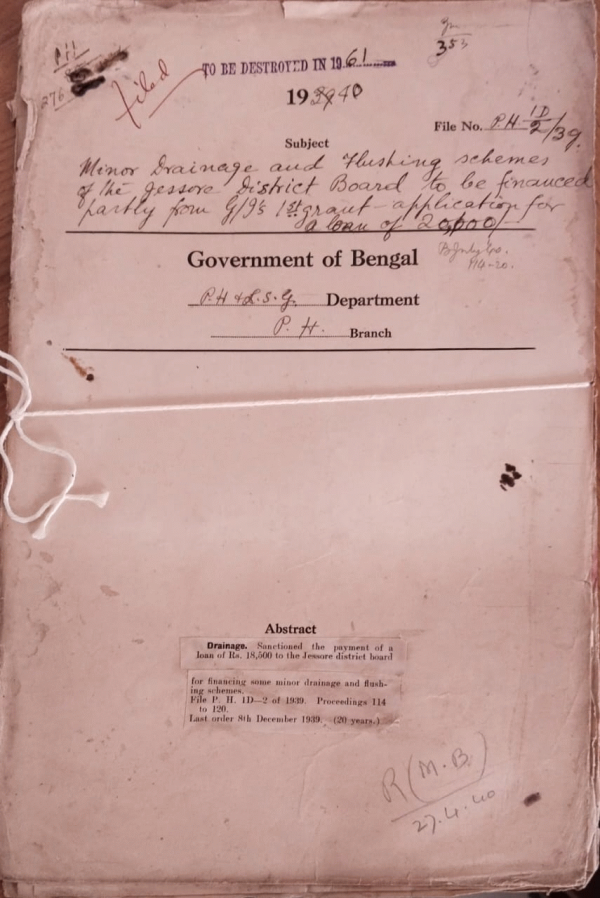 PH
276
filed
TO BE DESTROYED IN 1961
353
1940
File No. P.H. 1D-2/39.
Subject
Minor Drainage and Flushing schemes
of the Jessore District Board to be financed
partly from G/I's 1st grant - application for
a loan of 20,000/-
B. July 40.
114-20.
Government of Bengal
P.H & L.S.G. Department
P. H. Branch
Abstract
Drainage. Sanctioned the payment of a
loan of Rs. 18,500 to the Jessore district board
for financing some minor drainage and flush-
ing schemes.
File P. H. 1D—2 of 1939. Proceedings 114
to 120.
Last order 8th December 1939. (20 years.)
R(M.B.)
27.4.40